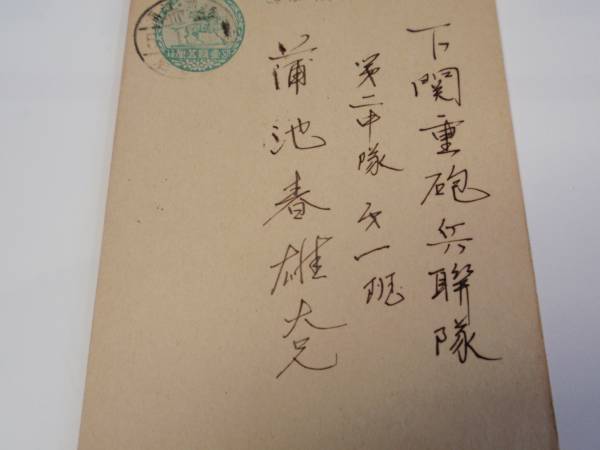 下関重砲兵聯隊
第二中隊 第一班
蒲池春雄大兄